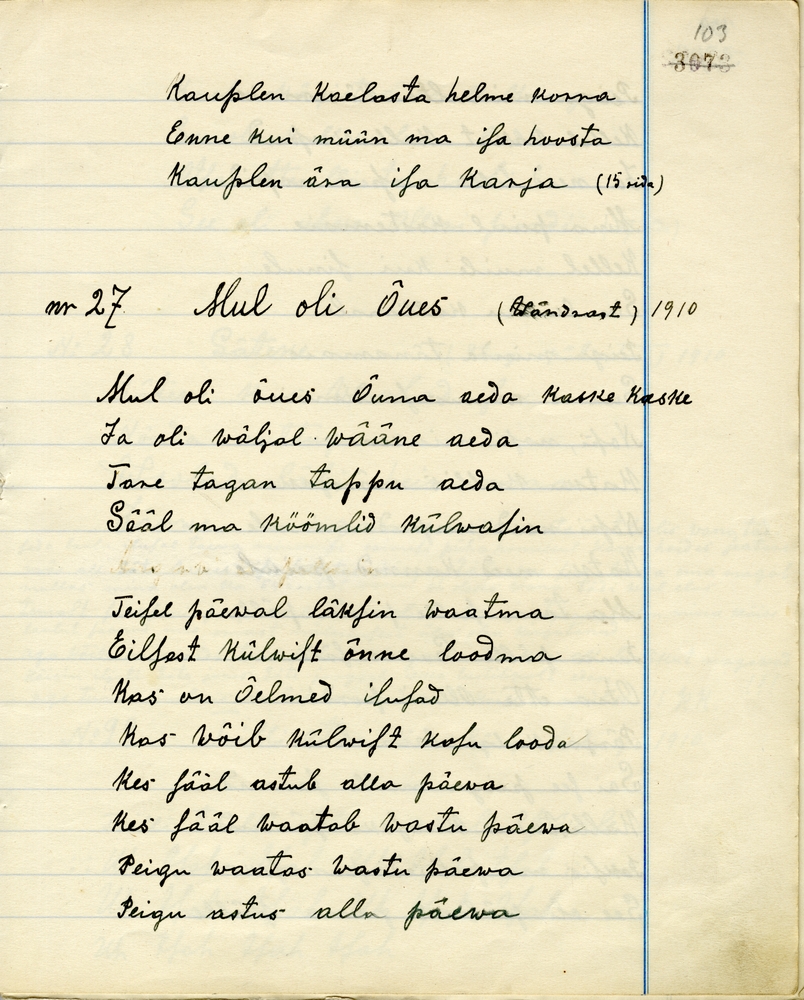 103
3073
Kauplen kaelasta helme korra
Enne kui müün ma isa hoosta
Kauplen ära isa karja (15 rida)
nr 27 Mul oli Õues (Wändrast) 1910
Mul oli õues Õuna aeda kaske kaske
Ja oli wäljal wääne aeda
Tare tagan tappu aeda
Sääl ma köömlid külwasin
Teisel päewal läksin waatma
Eilsest külwist õnne loodma
Kas on Õelmed ilusad
Kas wõib külwist kasu looda
Kes sääl astub alla päewa
Kes sääl waatab wastu päewa
Peigu waatas wastu päewa
Peigu astus alla päewa